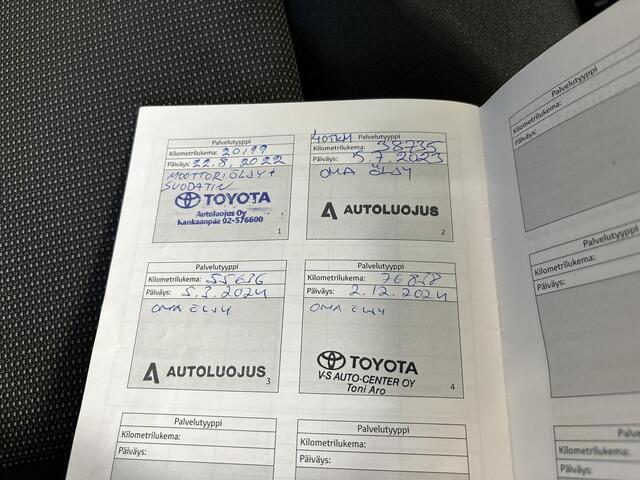 Palvelutyyppi
Kilometrilukema: 20199
Päiväys: 22.8.2022
MOOTTORIÖLJY +
SUODATIN
TOYOTA
Autoluojus Oy
Kankaanpää 02-576600
1
40TKM Palvelutyyppi
Kilometrilukema: 38735
Päiväys: 5.7.2023
OMA ÖLJY
AUTOLUOJUS
2
Palvelutyyppi
Kilometrilukema: 55636
Päiväys: 5.3.2024
OMA ÖLJY
AUTOLUOJUS
3
Palvelutyyppi
Kilometrilukema: 76838
Päiväys: 2.12.2024
OMA ÖLJY
TOYOTA
V-S AUTO-CENTER OY
Toni Aro
4
Palvelutyyppi
Kilometrilukema:
Päiväys:
Palvelutyyppi
Kilometrilukema:
Päiväys:
Palvelutyyppi
Kilometrilukema:
Päiväys:
Palvelutyyppi
Kilometrilukema:
Päiväys:
Kilometrilukema:
Päiväys: